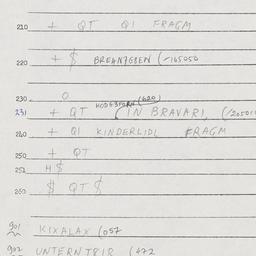 210 + QT QI FRAGM
220 + $ BREANGEBEN (/165050
230 O
231 + QT (IN BRAVARI, (/20501
240 + QI KINDERLIDL FRAGM
250 + QT
252 H $
260 $ QT $
901 KIXALAX (057
902 UNTERNTRIR (472